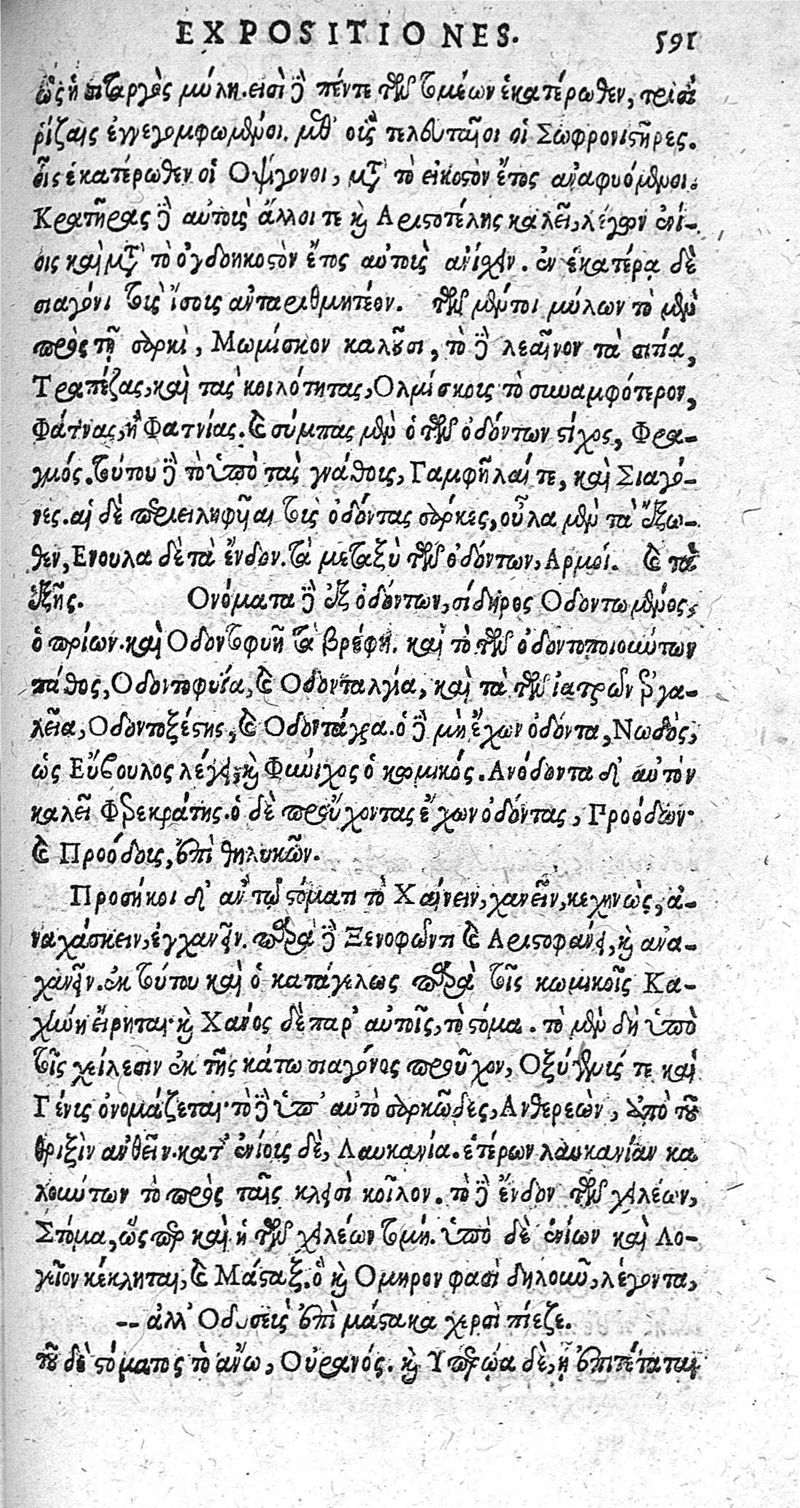 EXPOSITIONES. 591
ὡς ἡ πίταργὸς μύλη. εἰσὶ δὲ πέντε τῶν τομέων ἑκατέρωθεν, τρισὶ
ῥίζαις ἐγγεγομφωμένοι. μεθ' οὓς τελευταῖοι οἱ Σωφρονιστῆρες.
οἷς ἑκατέρωθεν οἱ Οψίγονοι, μετὰ τὸ εἰκοστὸν ἔτος ἀναφυόμενοι.
Κρατῆρας δὲ αὐτοὺς ἄλλοι τε καὶ Αριστοτέλης καλεῖ, λέγων ἐνί-
οις καὶ μετὰ τὸ ὀγδοηκοστὸν ἔτος αὐτοὺς ἀνίχειν. ἐν ἑκατέρᾳ δὲ
σιαγόνι τοὺς ἴσους ἀνταριθμητέον. τῶν μέντοι μύλων τὸ μὲν
πρὸς τῇ σαρκὶ, Μωμίσκον καλοῦσι, τὸ δὲ λεαῖνον τὰ σιτία,
Τραπέζας, καὶ τὰς κοιλότητας, Ολμίσκους τὸ συναμφότερον,
Φάτνας, ἢ Φατνίας. καὶ σύμπας μὲν ὁ τῶν ὀδόντων στίχος, Φρα-
γμός. τούτου δὲ τὸ ὑπὸ τὰς γνάθους, Γαμφῆλαί τε, καὶ Σιαγό-
νες. αἱ δὲ περιειληφῆαι τοὺς ὀδόντας σάρκες, οὖλα μὲν τὰ ἔξω-
θεν, Ενουλα δὲ τὰ ἔνδον. τὰ μεταξὺ τῶν ὀδόντων, Αρμοί. καὶ τὰ
ἑξῆς. Ονόματα δὲ ἐξ ὀδόντων, σίδηρος Οδοντωμένος,
ὁ πρίων. καὶ Οδοντοφυῆ τὰ βρέφη. καὶ τὸ τῶν ὀδοντοποιούντων
πάθος, Οδοντοφυΐα, καὶ Οδονταλγία, καὶ τὰ τῶν ἰατρῶν ἐργα-
λεῖα, Οδοντοξέστης, καὶ Οδοντάγρα. ὁ δὲ μὴ ἔχων ὀδόντα, Νωδὸς,
ὡς Εὔβουλος λέγει, καὶ Φιώιχος ὁ κωμικός. Ανόδοντα δ' αὐτὸν
καλεῖ Φερεκράτης. ὁ δὲ προὔχοντας ἔχων ὀδόντας, Προόδων.
καὶ Προόδους, ἐπὶ θηλυκῶν.
Προσήκοι δ' ἂν τῷ στόματι τὸ Χαίνειν, χανεῖν, κεχηνὼς, ἀ-
ναχάσκειν, ἐγχανεῖν. παρὰ δὲ Ξενοφῶντι καὶ Αριστοφάνει, καὶ ἀνα-
χανεῖν. ἐκ τούτου καὶ ὁ κατάγελως παρὰ τοῖς κωμικοῖς Κα-
χήνη εἴρηται. καὶ Χανος δὲ παρ' αὐτοῖς, τὸ στόμα. τὸ μὲν δὴ ὑπὸ
τοῖς χείλεσιν ἐκ τῆς κάτω σιαγόνος προὖχον, Οξύθμίς τε καὶ
Γένις ὀνομάζεται. τὸ δὲ ὑπ' αὐτὸ σαρκῶδες, Ανθερεὼν, ἀπὸ τοῦ
θριξὶν ἀνθεῖν. κατ' ἐνίους δὲ, Λαυκανία. ἑτέρων λαυκανίαν κα
λούντων τὸ πρὸς ταῖς κλεισὶ κοῖλον. τὸ δὲ ἔνδον τῶν χειλέων,
Στόμα, ὥσπερ καὶ ἡ τῶν χειλέων τομή. ὑπὸ δὲ ἐνίων καὶ Λο-
γεῖον κέκληται, καὶ Μάσταξ. ὃ καὶ Ομηρον φασὶ δηλοῦν, λέγοντα,
-- ἀλλ' Οδυσεὺς ἐπὶ μάστακα χερσὶ πίεζε.
τοῦ δὲ στόματος τὸ ἄνω, Οὐρανός. καὶ Υπερῴα δὲ, ἣ ἐπιπέταται